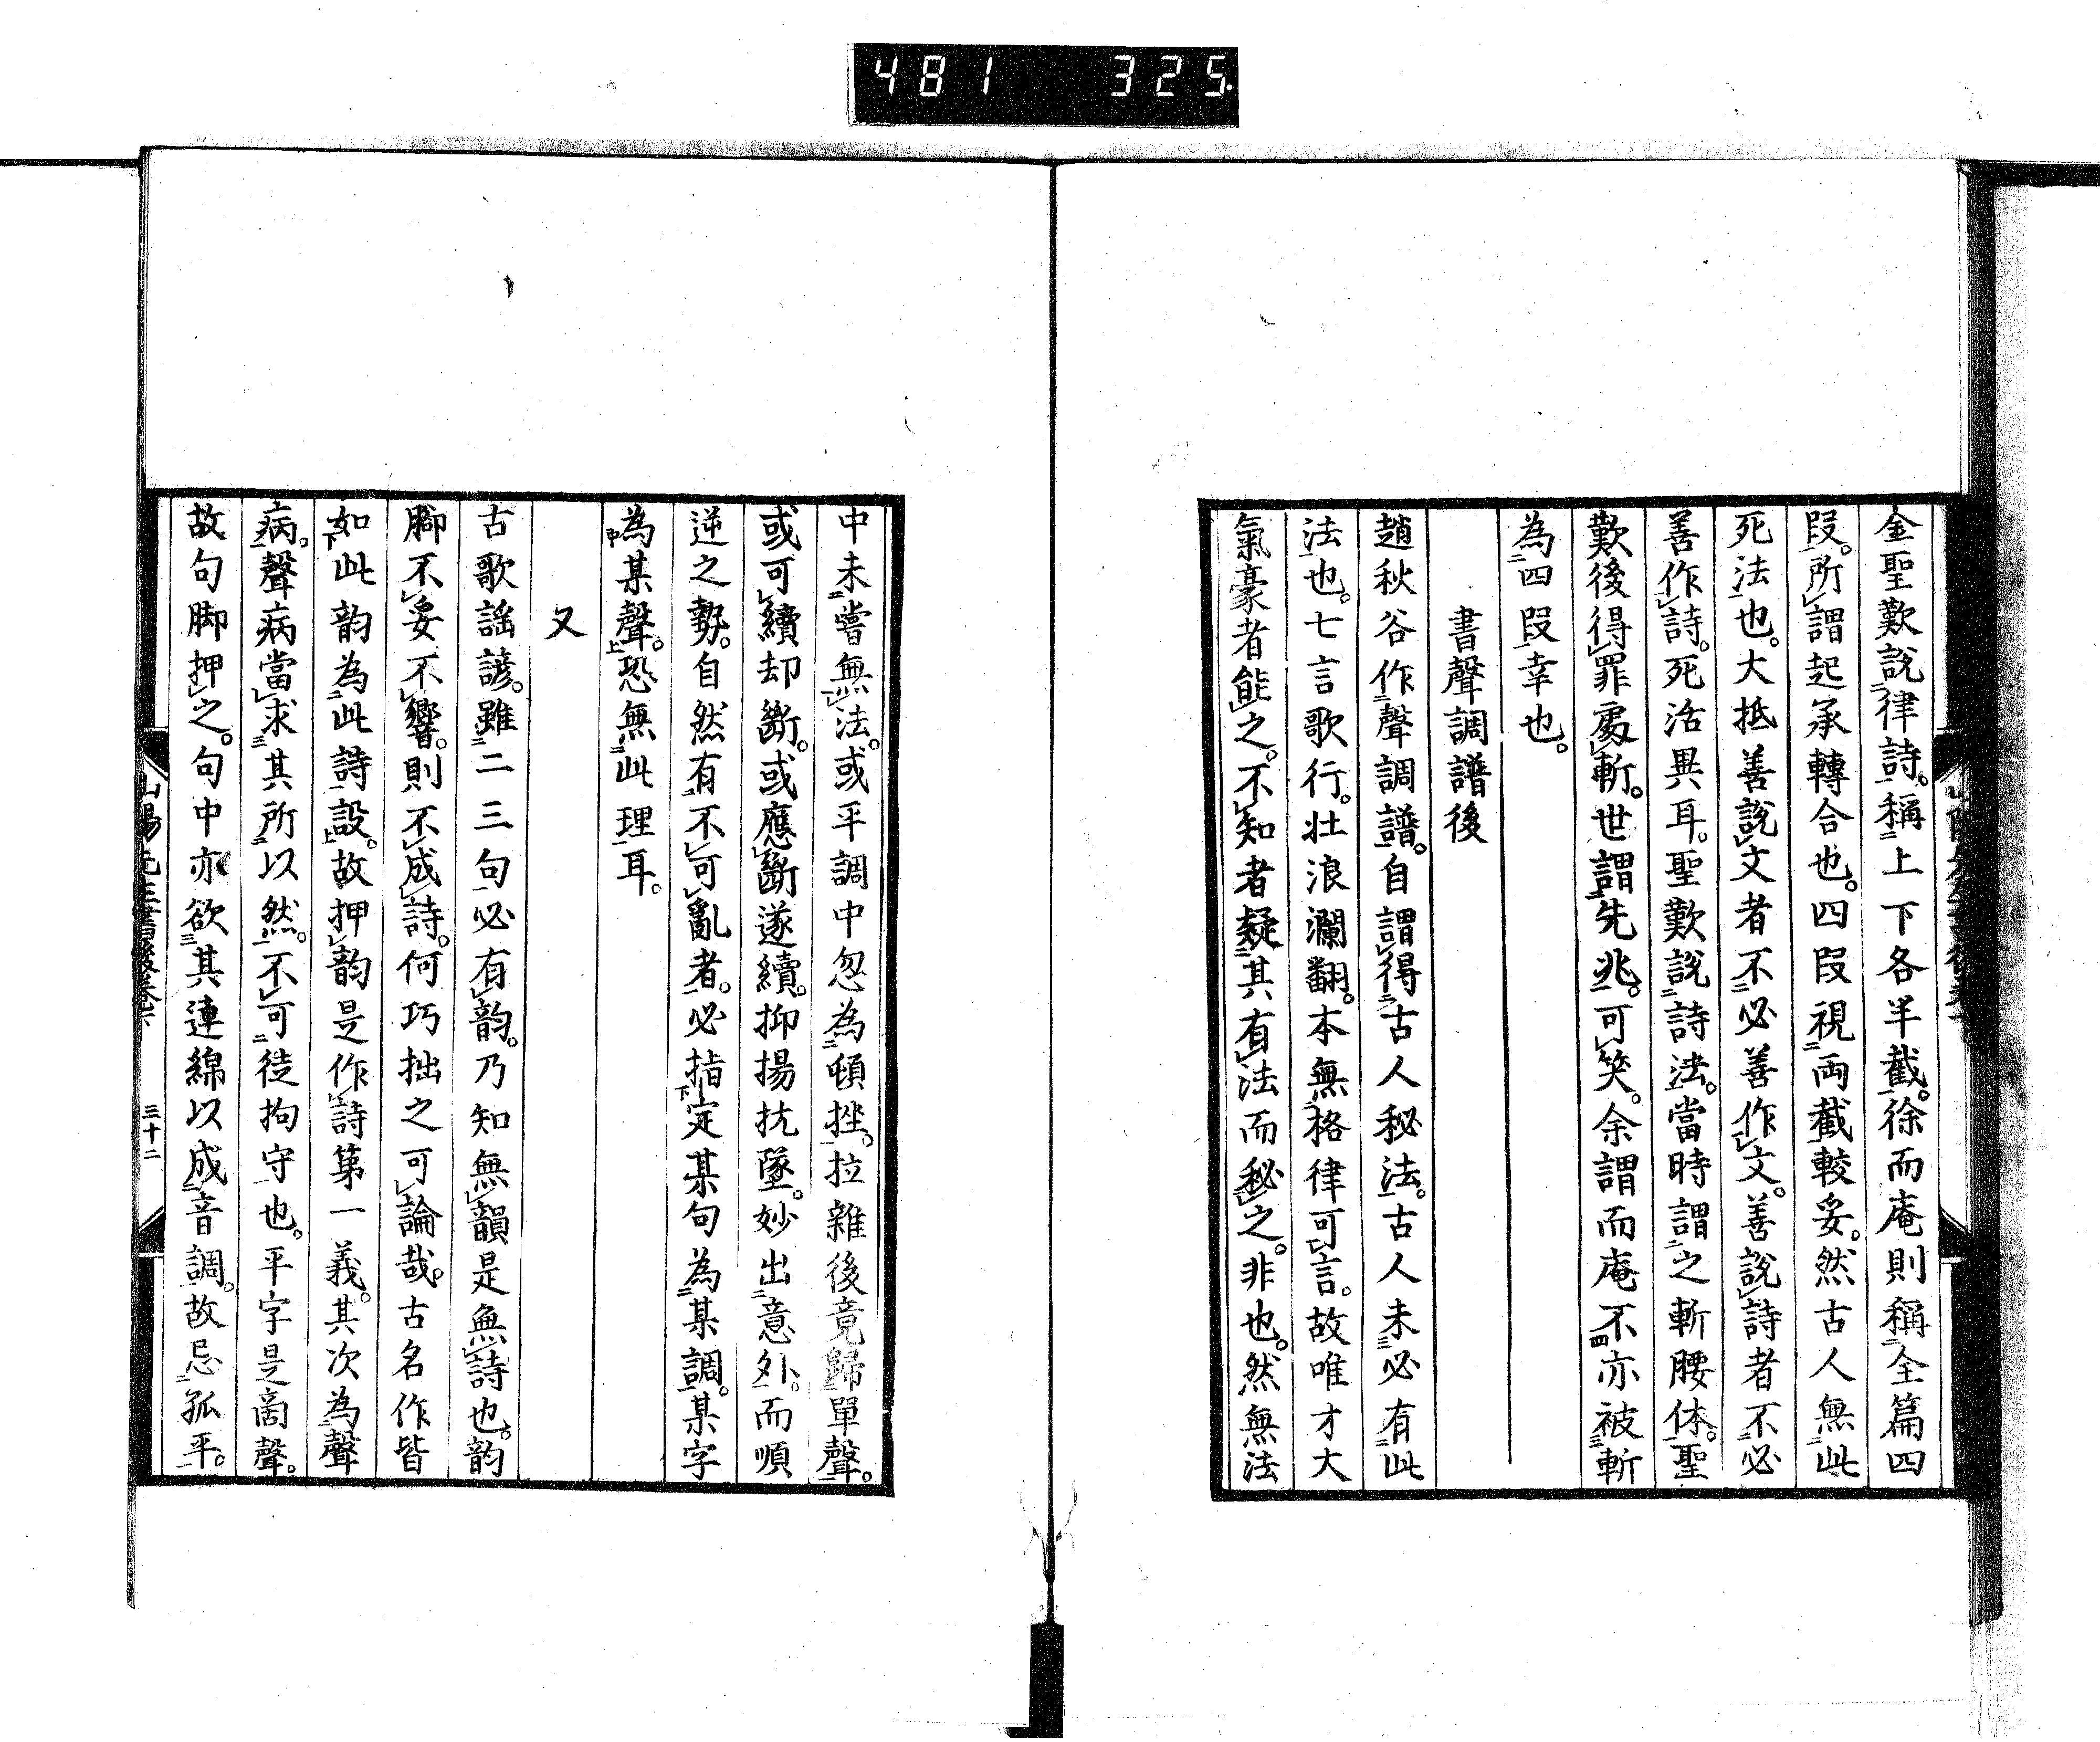 481 325
金聖歎說律詩。稱上下各半截。徐而庵則稱全篇四
段。所謂起承轉合也。四段視両截較妥。然古人無此
死法也。大抵善說文者不必善作文。善說詩者不必
善作詩。死活異耳。聖歎說詩法。當時謂之斬腰体。聖
歎後得罪處斬。世謂先兆。可笑。余謂而庵不亦被斬
為四段幸也。
書聲調譜後
趙秋谷作聲調譜。自謂得古人秘法。古人未必有此
法也。七言歌行。壮浪瀾翻。本無格律可言。故唯才大
氣豪者能之。不知者疑其有法而秘之。非也。然無法
中未嘗無法。或平調中忽為頓挫。拉雜後竟歸單聲。
或可續却斷。或應斷遂續。抑揚抗墜。妙出意外。而順
逆之勢。自然有不可亂者。必指定某句為某調。某字
為某聲。恐無此理耳。
又
古歌謡諺。雖二三句必有韵。乃知無韻是無詩也。韵
腳不妥不響。則不成詩。何巧拙之可論哉。古名作皆
如此韵為此詩設。故押韵是作詩第一義。其次為聲
病。聲病當求其所以然。不可徒拘守也。平字是啇聲。
故句脚押之。句中亦欲其連綿以成音調。故忌孤平。
山陽先生書後卷下
三十二